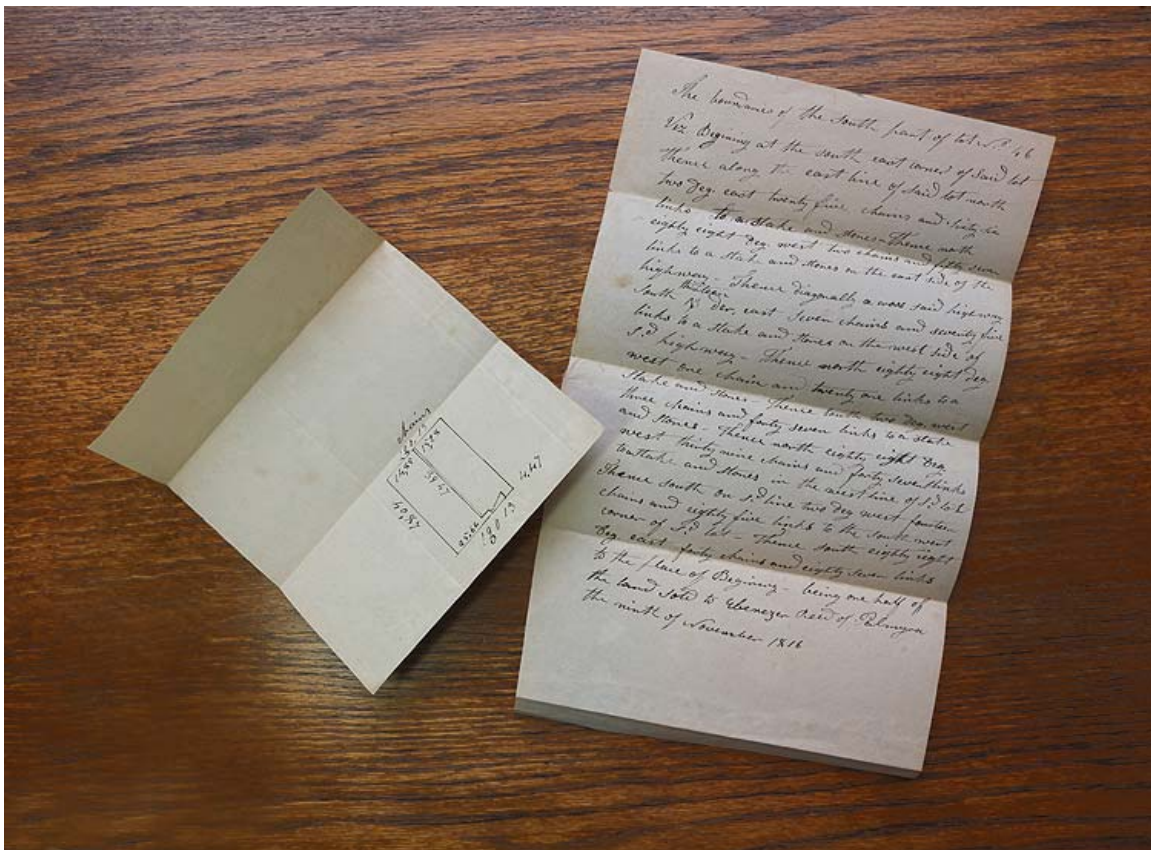 The boundaries of the south part of lot No. 46
Viz Begining at the south east corner of said lot
Thence along the east line of said lot north
two Deg. east twenty five chains and sixty six
links to a stake and stones - Thence north
eighty eight Deg. west two chains and fifty seven
links to a stake and stones on the east side of the
highway - Thence diagonally across said highway
thirteen
South Deg. east seven chains and seventy five
links to a stake and stones on the west side of
s.d highway - Thence north eighty eight deg
west one chain and twenty one links to a
stake and stones - Thence south two Deg. west
three chains and forty seven links to a stake
and stones - Thence north eighty eight Deg
west thirty nine chains and forty seven links
to a stake and stones in the west line of s.d lot
Thence south on s.d line two Deg west fourteen
chains and eighty five links to the south west
corner of s.d lot - Thence south eighty eight
Deg east forty chains and eighty seven links
to the place of Begining - being one half of
the land sold to Ebenezer Reed of Palmyra
the ninth of November 1816
chains
39.47
40.87
25.66
4.47